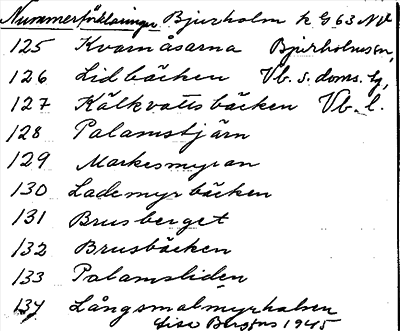 Nummerförklaringe Bjurholm k G 63 NV
125 Kvarnåsarna Bjurholmssn,
126 Lidbäcken Vb. s. doms. bg,
127 Kälkvattsbäcken Vb. l.
128 Palamstjärn
129 Markesmyran
130 Lademyrbäcken
131 Brusberget
132 Brusbäcken
133 Palamsliden
134 Långsmalmyrhalsen
Lisa 1945